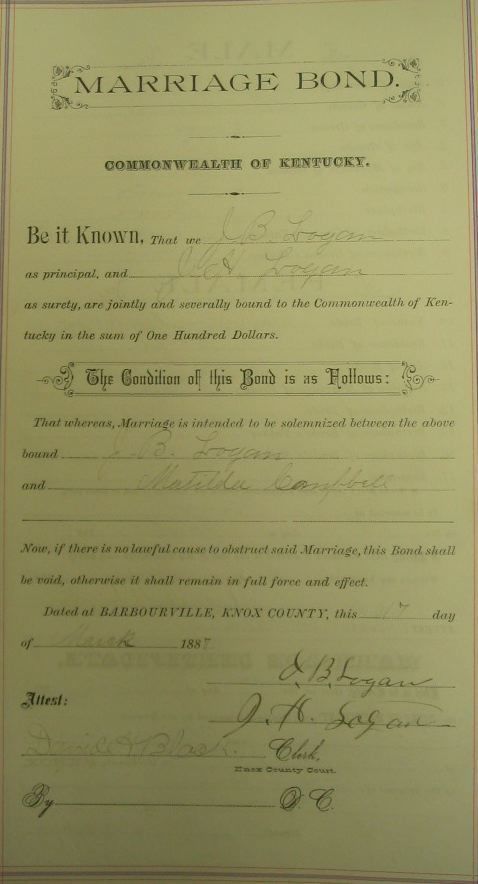 MARRIAGE BOND.
COMMONWEALTH OF KENTUCKY.
Be it Known, That we J. B. Logan
as principal, and Logan
as surety, are jointly and severally bound to the Commonwealth of Ken-
tucky in the sum of One Hundred Dollars.
The Condition of this Bond is as Follows:
That whereas, Marriage is intended to be solemnized between the above
bound J. B. Logan
and Matilda Campbell
Now, if there is no lawful cause to obstruct said Marriage, this Bond shall
be void, otherwise it shall remain in full force and effect.
Dated at BARBOURVILLE, KNOX COUNTY, this 17 day
of March 1887
J. B. Logan
Attest:
J. H. Logan
Black. Clerk,
Knox County Court.
By D. C.